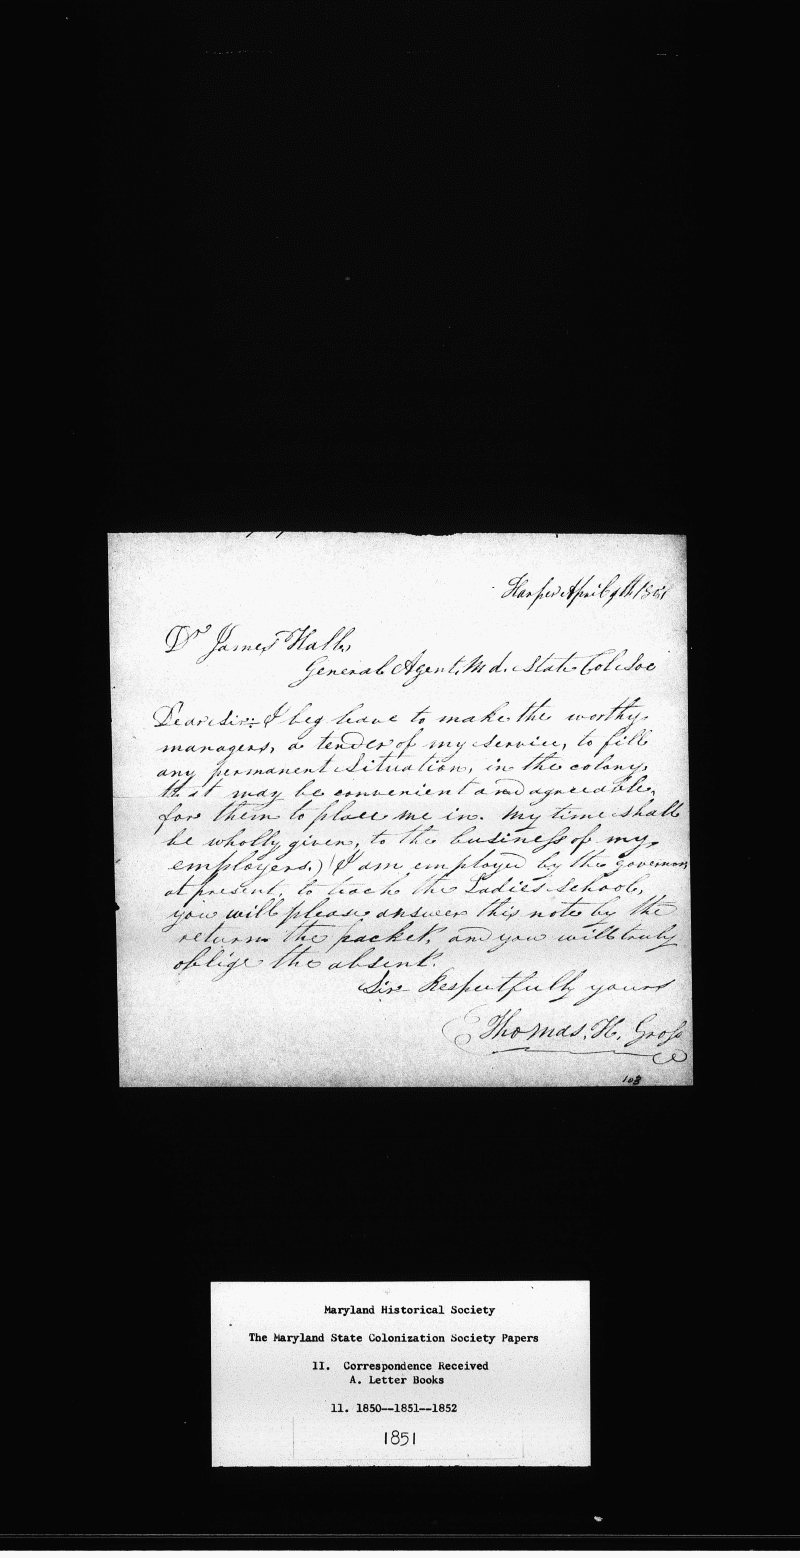 Harper April 9th 1851
Dr James Hall,
General Agent, Md. State Col. Soc
Dear Sir:- I beg leave to make the worthy
managers, a tender of my service, to fill
any permanent situation, in the colony,
that may be convenient and agreeable,
for them to place me in. My time shall
be wholly given, to the business of my,
employers.) I am employed by the governor
at present, to teach the Ladies School,
you will please answer this note by the
return the packet, and you will truly
oblige the absent.
Sir Respectfully yours
Thomas. H. Gross
103
Maryland Historical Society
The Maryland State Colonization Society Papers
II. Correspondence Received
A. Letter Books
11. 1850--1851--1852
1851